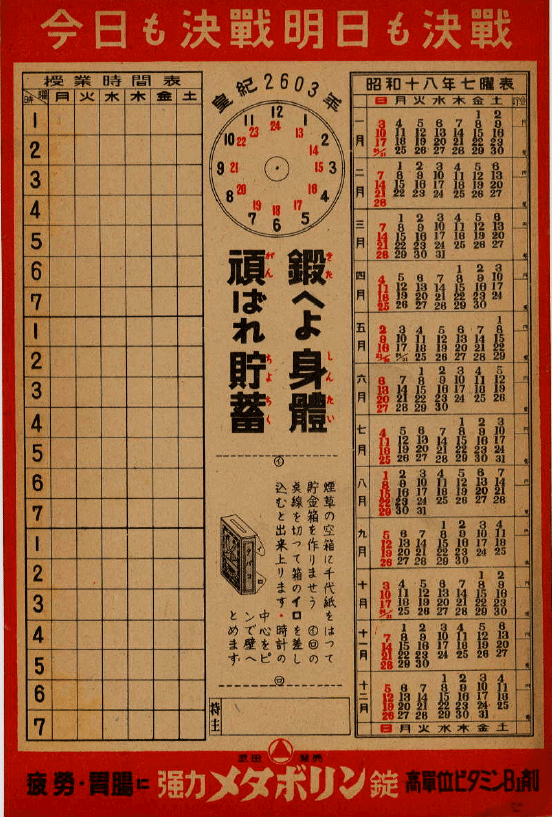 今日も決戰明日も決戰
授業時間表
時 曜 月 火 水 木 金 土
1
2
3
4
5
6
7
1
2
3
4
5
6
7
1
2
3
4
5
6
7
皇紀2603年
12 1 2 3 4 5 6 7 8 9 10 11
24 13 14 15 16 17 18 19 20 21 22 23
鍛へよ身體
きた しんたい
頑ばれ貯蓄
がん ちよちく
イ
煙草の空箱に千代紙をはつて
貯金箱を作りませう イロの
點線を切つて箱のイロを差し
込むと出来上ります。時計の
中心をピ
ンで壁へ
とめます
タバコ
ロ
持主
昭和十八年七曜表
日 月 火 水 木 金 土
一月
1 2
3 4 5 6 7 8 9
10 11 12 13 14 15 16
17 18 19 20 21 22 23
24/31 25 26 27 28 29 30
二月
1 2 3 4 5 6
7 8 9 10 11 12 13
14 15 16 17 18 19 20
21 22 23 24 25 26 27
28
三月
1 2 3 4 5 6
7 8 9 10 11 12 13
14 15 16 17 18 19 20
21 22 23 24 25 26 27
28 29 30 31
四月
1 2 3
4 5 6 7 8 9 10
11 12 13 14 15 16 17
18 19 20 21 22 23 24
25 26 27 28 29 30
五月
1
2 3 4 5 6 7 8
9 10 11 12 13 14 15
16 17 18 19 20 21 22
23/30 24/31 25 26 27 28 29
六月
1 2 3 4 5
6 7 8 9 10 11 12
13 14 15 16 17 18 19
20 21 22 23 24 25 26
27 28 29 30
七月
1 2 3
4 5 6 7 8 9 10
11 12 13 14 15 16 17
18 19 20 21 22 23 24
25 26 27 28 29 30 31
八月
1 2 3 4 5 6 7
8 9 10 11 12 13 14
15 16 17 18 19 20 21
22 23 24 25 26 27 28
29 30 31
九月
1 2 3 4
5 6 7 8 9 10 11
12 13 14 15 16 17 18
19 20 21 22 23 24 25
26 27 28 29 30
十月
1 2
3 4 5 6 7 8 9
10 11 12 13 14 15 16
17 18 19 20 21 22 23
24/31 25 26 27 28 29 30
十一月
1 2 3 4 5 6
7 8 9 10 11 12 13
14 15 16 17 18 19 20
21 22 23 24 25 26 27
28 29 30
十二月
1 2 3 4
5 6 7 8 9 10 11
12 13 14 15 16 17 18
19 20 21 22 23 24 25
26 27 28 29 30 31
日 月 火 水 木 金 土
武田 發売
疲勞・胃腸に 強力メタボリン錠 高單位ビタミンB1劑